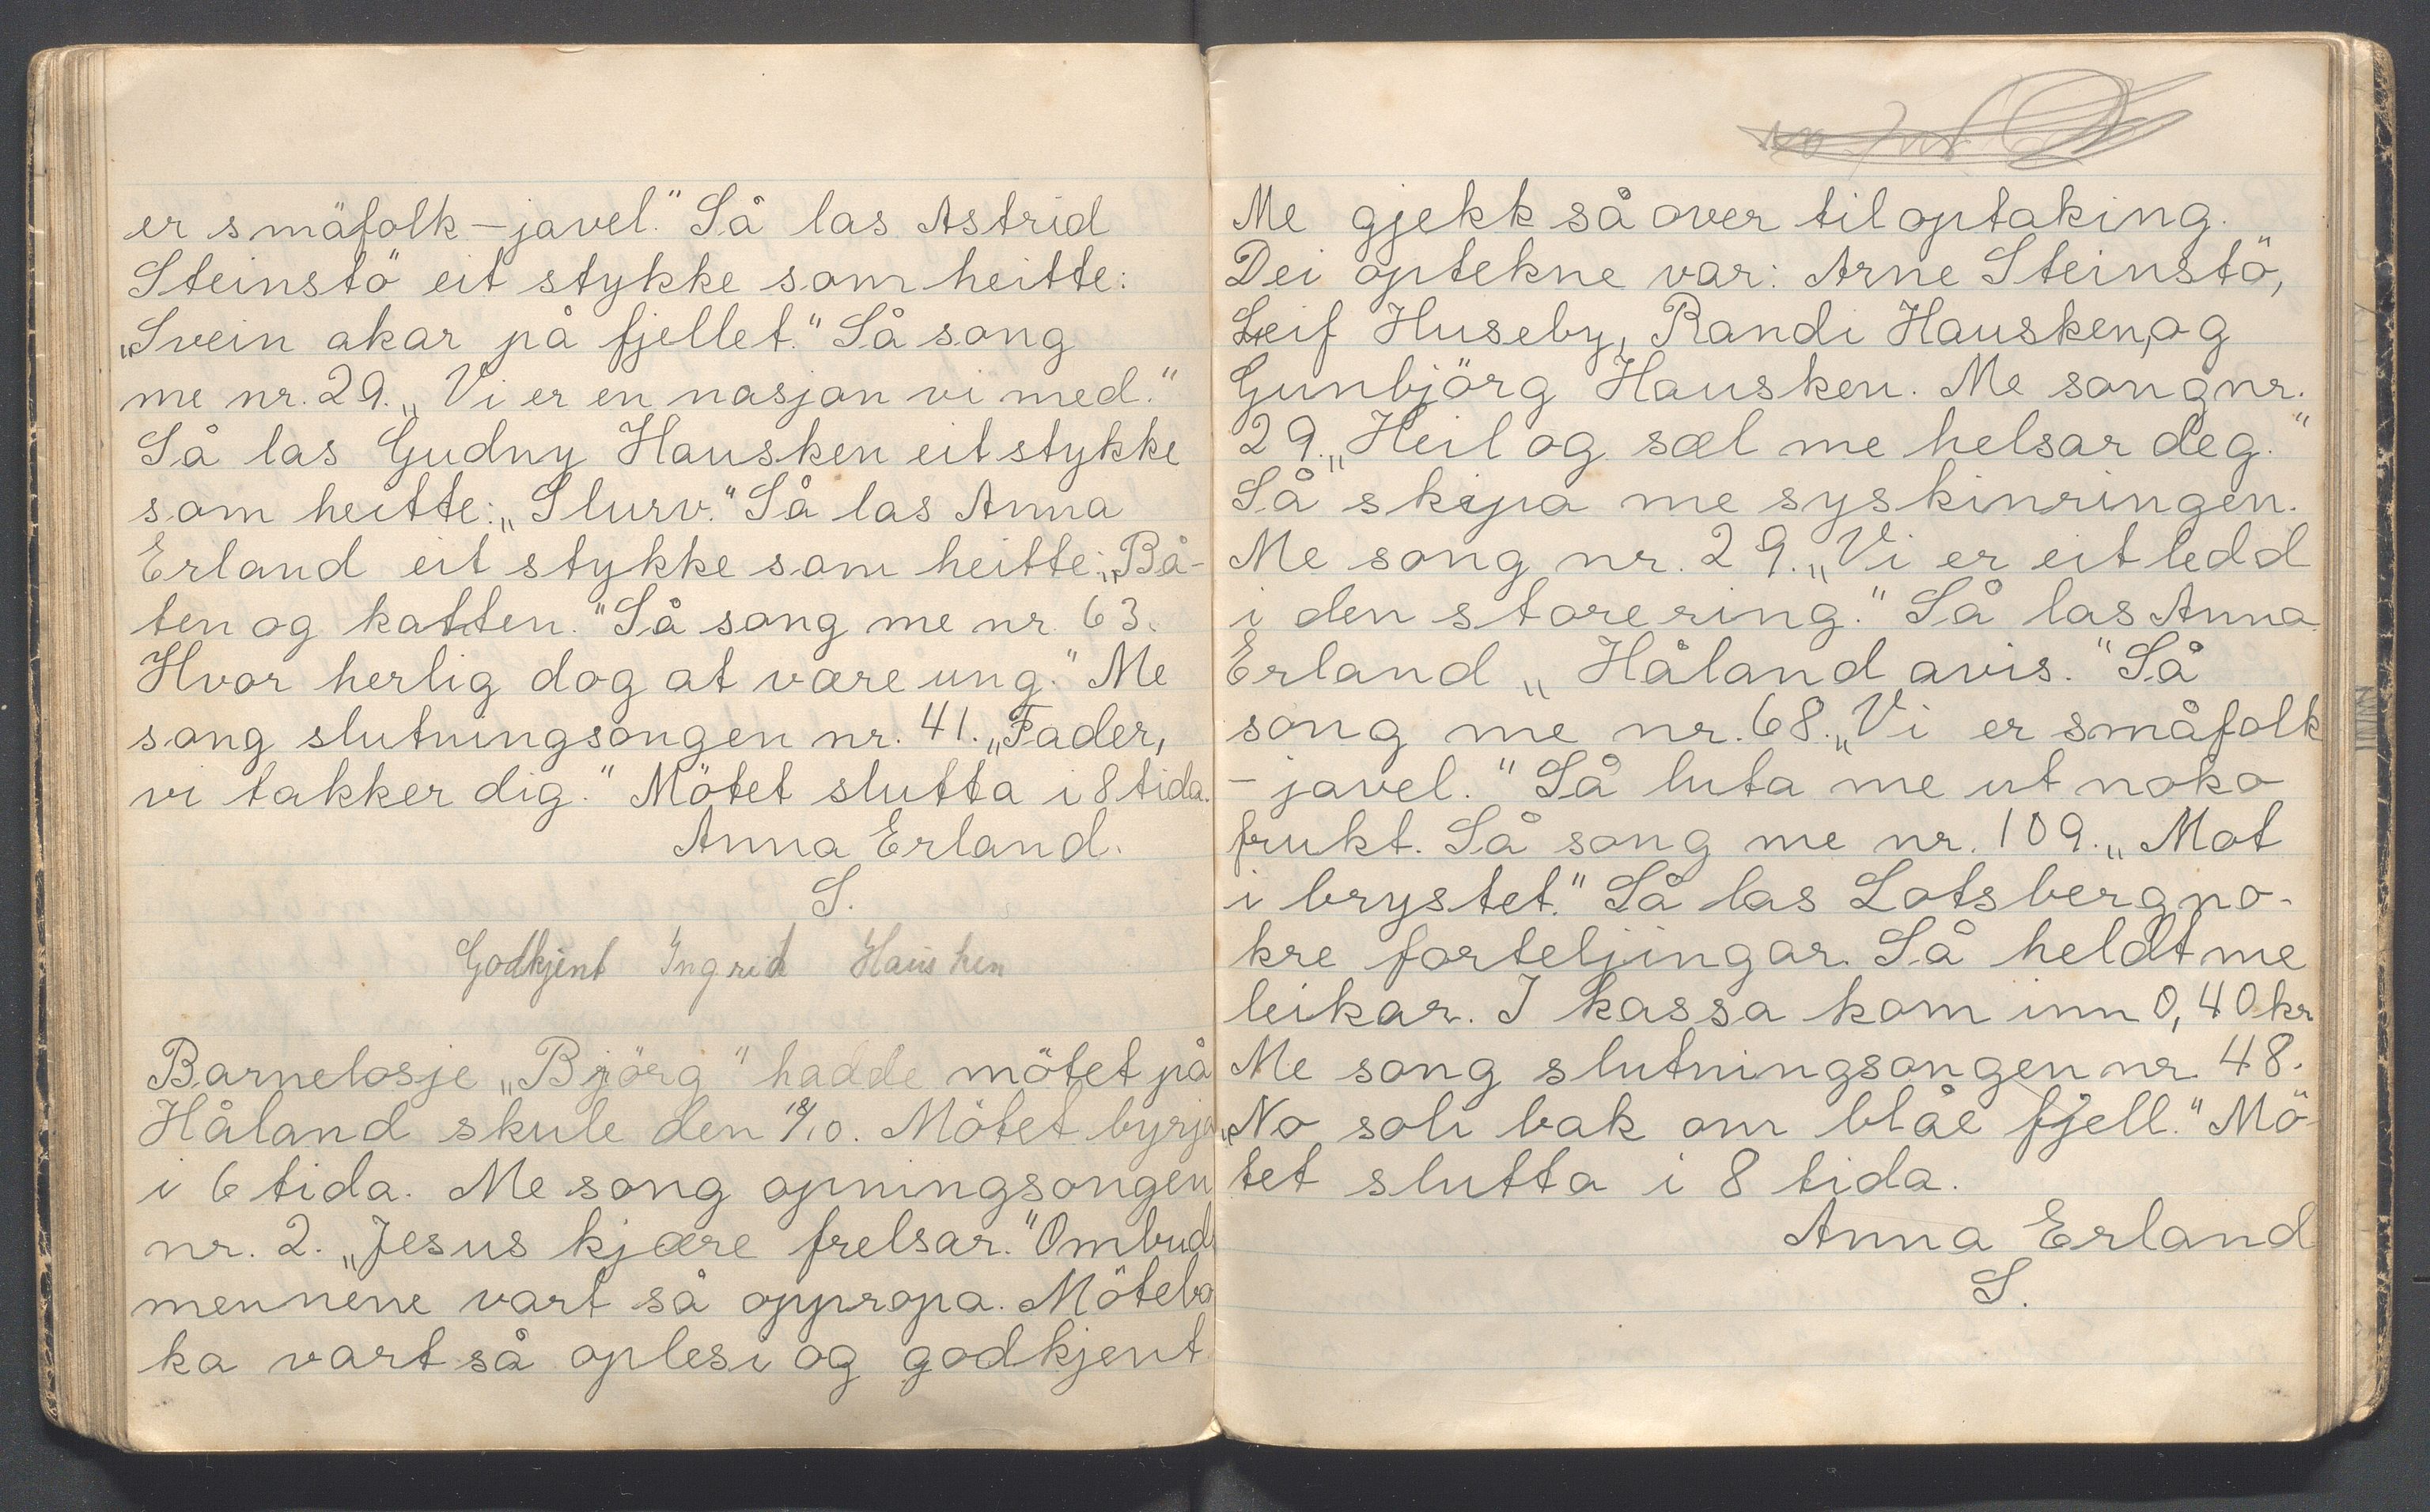 er småfolk – javel." Så las Astrid
Steinstö eit stykke som heitte:
„Svein akar på fjellet." Så song
me nr. 29. „Vi er en nasjon vi med."
Så las Gudny Hausken eit stykke
som heitte: „Slurv." Så las Anna
Erland eit stykke som heitte: „Bå-
ten og katten." Så song me nr. 63.
Hvor herlig dog at være ung." Me
song slutningsongen nr. 41. „Fader,
vi takker dig." Mötet slutta i 8 tida.
Anna Erland.
S.
Godkjent Ingrid Hausken
Barnelosje „Björg" hadde mötet på
Håland skule den 18/10. Mötet byrja
i 6 tida. Me song opningsongen
nr. 2. „Jesus kjære frelsar." Ombuds
mennene vart så oppropa. Mötebo
ka vart så oplesi og godkjent
Me gjekk så over til optaking.
Dei optekne var: Arne Steinstö,
Leif Huseby, Randi Hausken, og
Gunbjörg Hausken. Me song nr.
29. „Heil og sæl me helsar deg."
Så skipa me syskinringen.
Me song nr. 29. „Vi er eit ledd
i den store ring." Så las Anna
Erland „Håland avis." Så
song me nr. 68. „Vi er småfolk
– javel." Så luta me ut noko
frukt. Så song me nr. 109. „Mot
i brystet." Så las Lotsberg no-
kre forteljingar. Så heldt me
leikar. I kassa kom inn 0,40 kr
Me song slutningsongen nr. 48.
„No soli bak om blåe fjell." Mö-
tet slutta i 8 tida.
Anna Erland
S.